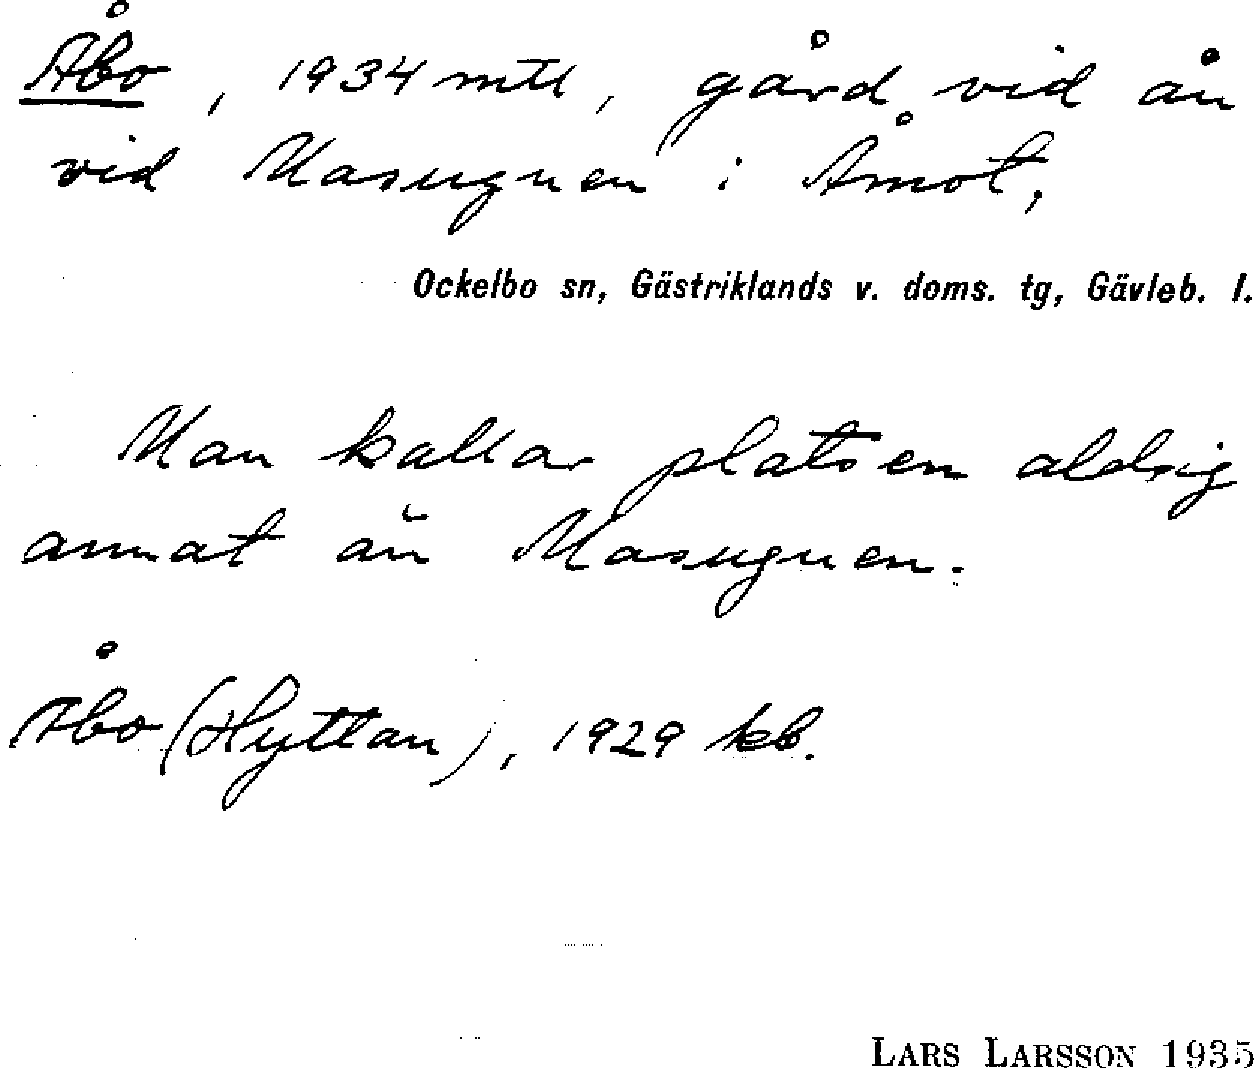 Åbo, 1934 mtl, gård vid ån
vid Masugnen i Åmot,
Ockelbo sn, Gästriklands v. doms. tg, Gävleb. l.
Man kallar platsen aldrig
annat än Masugnen.
Åbo (Hyttan), 1929 kb.
LARS LARSSON 1935